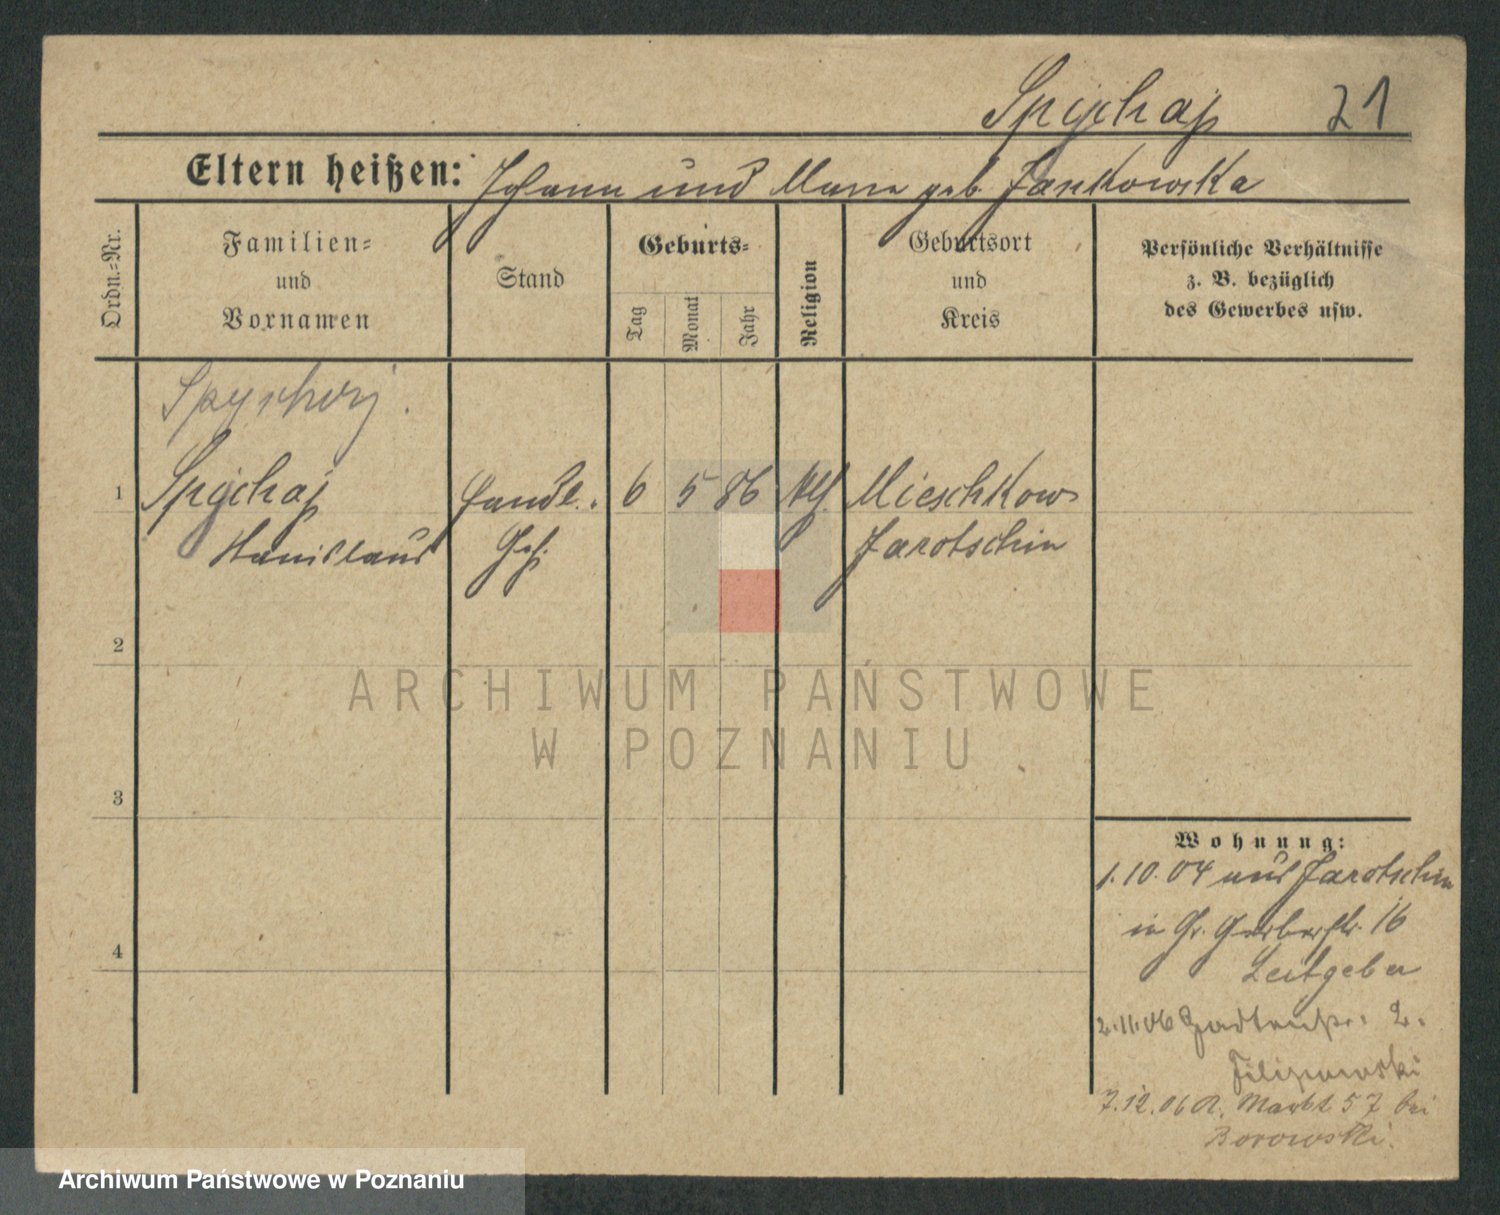 Spychaj 21
Eltern heißen: Johann und Maria geb. Jankowska
Ordn.-Nr.
Familien-
und
Vornamen
Stand
Geburts-
Tag
Monat
Jahr
Religion
Geburtsort
und
Kreis
Persönliche Verhältnisse
z. B. bezüglich
des Gewerbes usw.
1
Spychaj Handl. 6 5 86 kth. Mieschkow
Stanislaus Geh. Jarotschin
2
3
4
Wohnung:
1.10.04 aus Jarotschin
in Gr. Gerberstr. 16
Leitgeber
2.11.06 2.
7.12.06 A. Markt 57 bei
Borowski.
ARCHIWUM PAŃSTWOWE
W POZNANIU
Archiwum Państwowe w Poznaniu